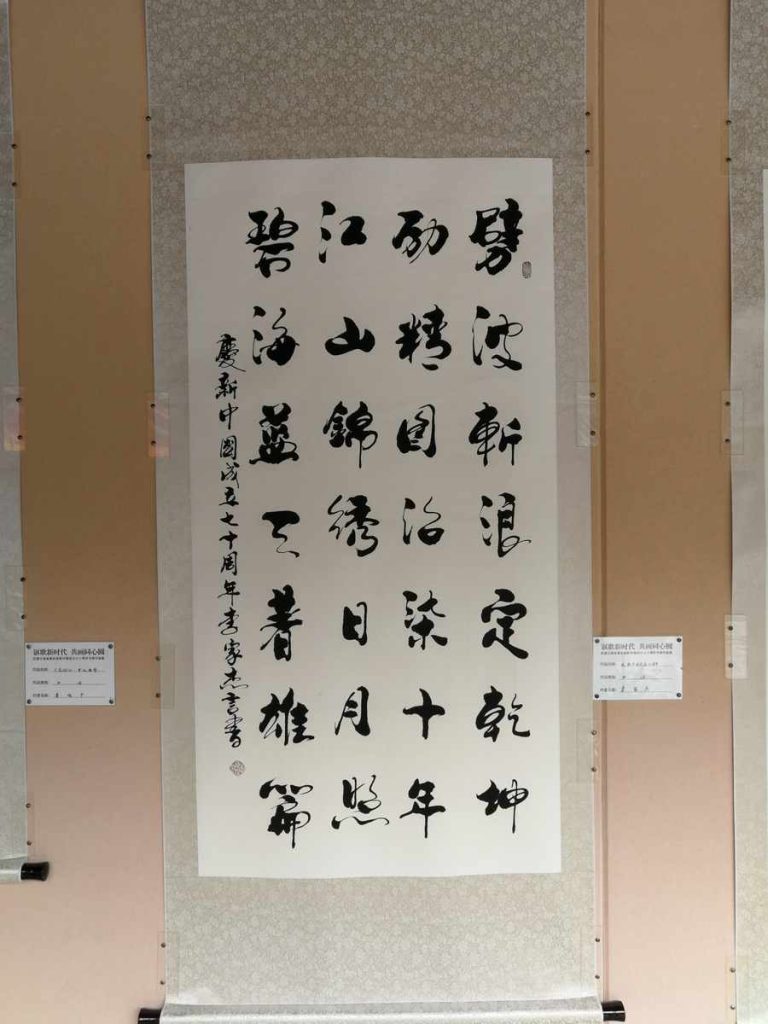 劈波斬浪定乾坤
励精图治柒十年
江山錦绣日月照
碧海蓝天著雄篇
慶新中國成立七十周年李家杰言書
讴歌新时代 共画同心圆
讴歌新时代 共画同心圆